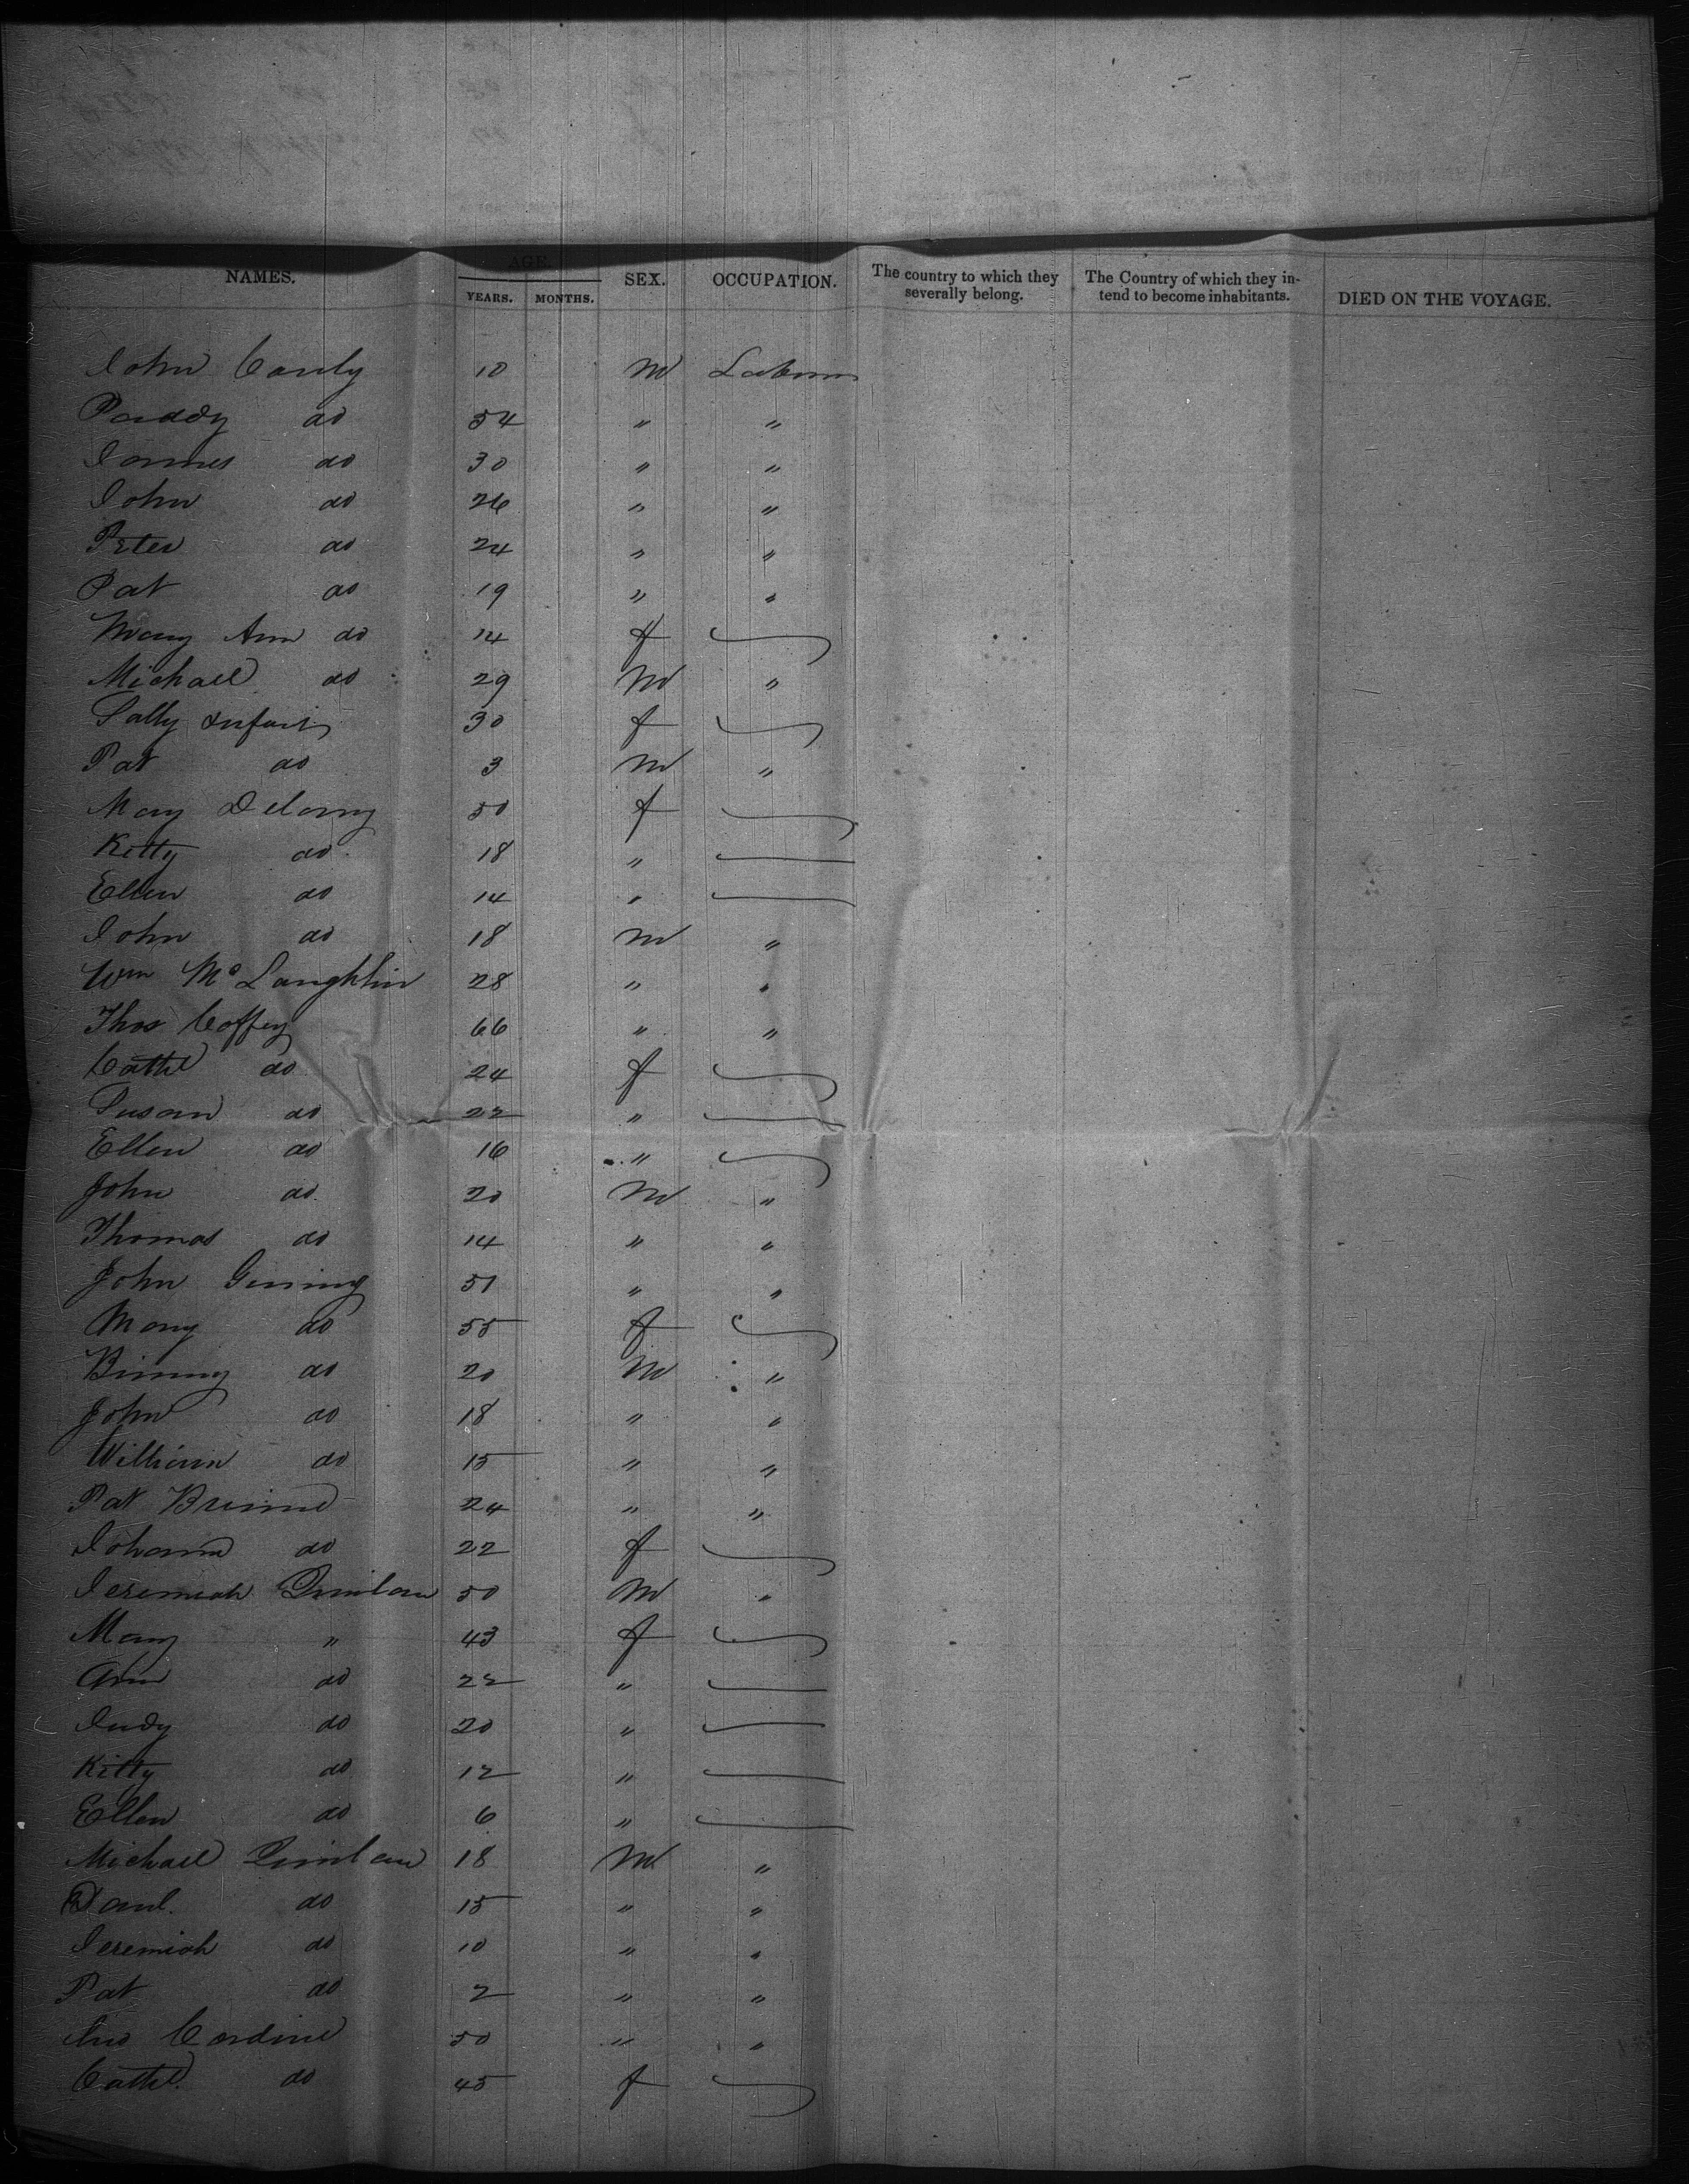 NAMES. AGE. YEARS. MONTHS. SEX. OCCUPATION. The country to which they severally belong. The Country of which they intend to become inhabitants. DIED ON THE VOYAGE.
John 10 M
Paddy do 54 " "
James do 30 " "
John do 26 " "
Peter do 24 " "
Pat do 19 " "
Mary Ann do 14 f
Michael do 29 M "
Sally Infant 30 f
Pat do 3 M "
Mary Delany 50 f
Kitty do 18 "
Ellen do 14 "
John do 18 M "
Wm McLaughlin 28 " "
Thos Coffey 66 " "
Cath do 24 f
Susan do 22 "
Ellen do 16 "
John do 20 M "
Thomas do 14 " "
John 51 " "
Mary do 55 f
do 20 M "
John do 18 " "
William do 15 " "
Pat 24 " "
Johanna do 22 f
Jeremiah Quinlan 50 M "
Mary " 43 f
Ann do 22 "
Judy do 20 "
Kitty do 12 "
Ellen do 6 "
Michael Quinlan 18 M "
Danl. do 15 " "
Jeremiah do 10 " "
Pat do 2 " "
50 " "
Cath do 45 f